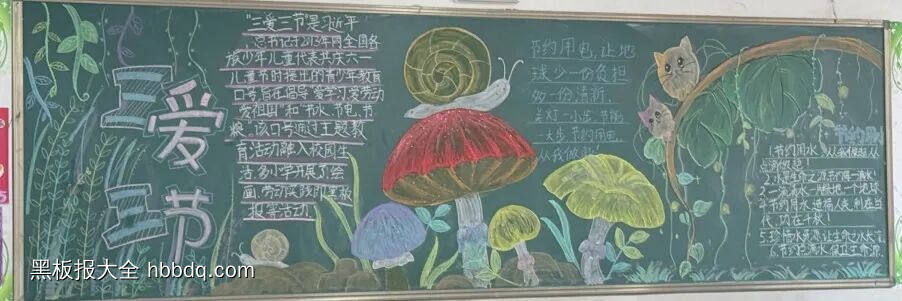 三爱
三节
"三爱三节"是习近平
总书记于2013年同全国各
族少年儿童代表共庆六一
儿童节时提出的青少年教育
口号旨在倡导"爱学习爱劳动
爱祖国"和"节水、节电、节
粮",该口号通过主题教
育活动融入校园生
活,多小学开展了绘
画、劳动实践即黑板
报等活动
节约用电,让地
球少一份负担
多一份清新,
关灯一小步,节能
一大步,节约用电,
从我做起!
节约用
1.节约用水,从我做起从
点滴做起!
2.一滴清水,一片绿地一个地球
4.节约用水 造福人类,利在当
代,功在千秋!
5.珍惜水资源让生命之水长
黑板报大全 hbbdq.com